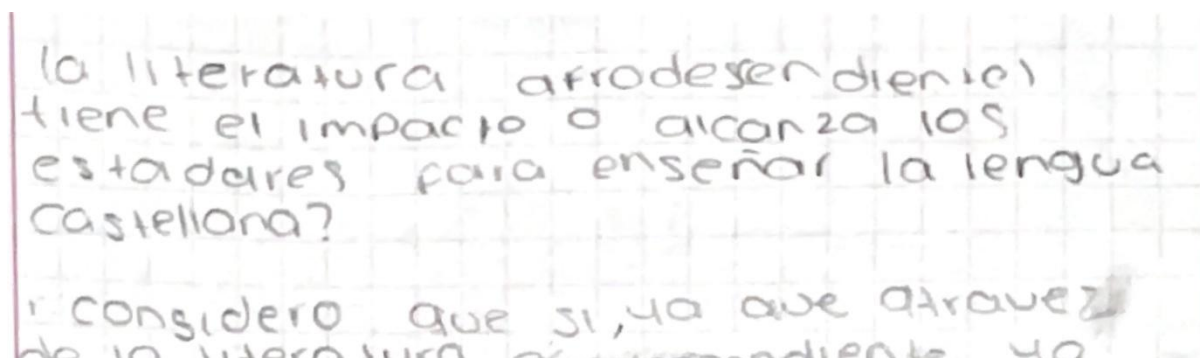 la literatura afrodesendientel
tiene el impacto o alcanza los
estadares para enseñar la lengua
castellana?
considero que si, ya que atravez
de la literatura